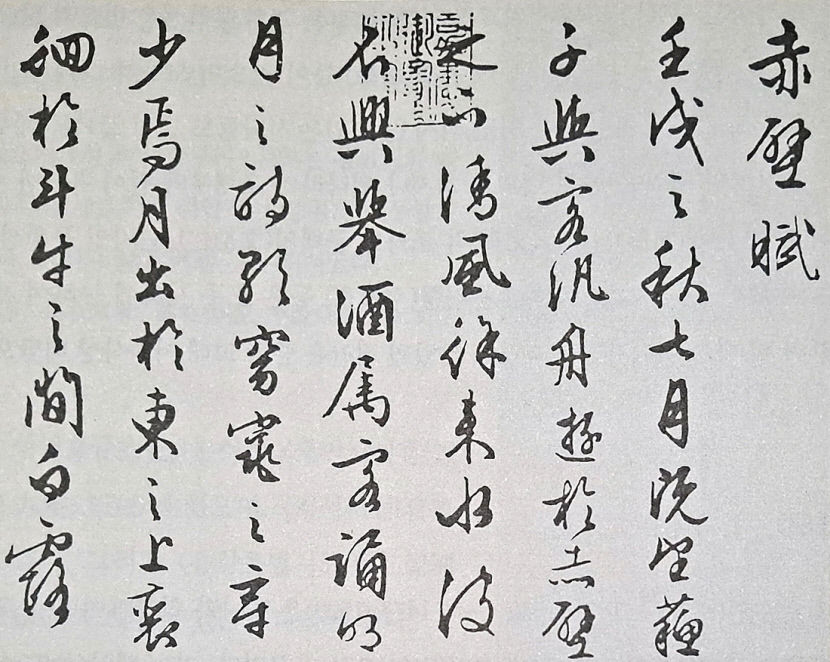 赤壁賦
壬戌之秋七月既望蘇
子與客汎舟遊於赤壁
之下清風徐來水波
不興舉酒属客誦明
月之詩歌窈窕之章
少焉月出於東之上裵
徊於斗牛之間白露